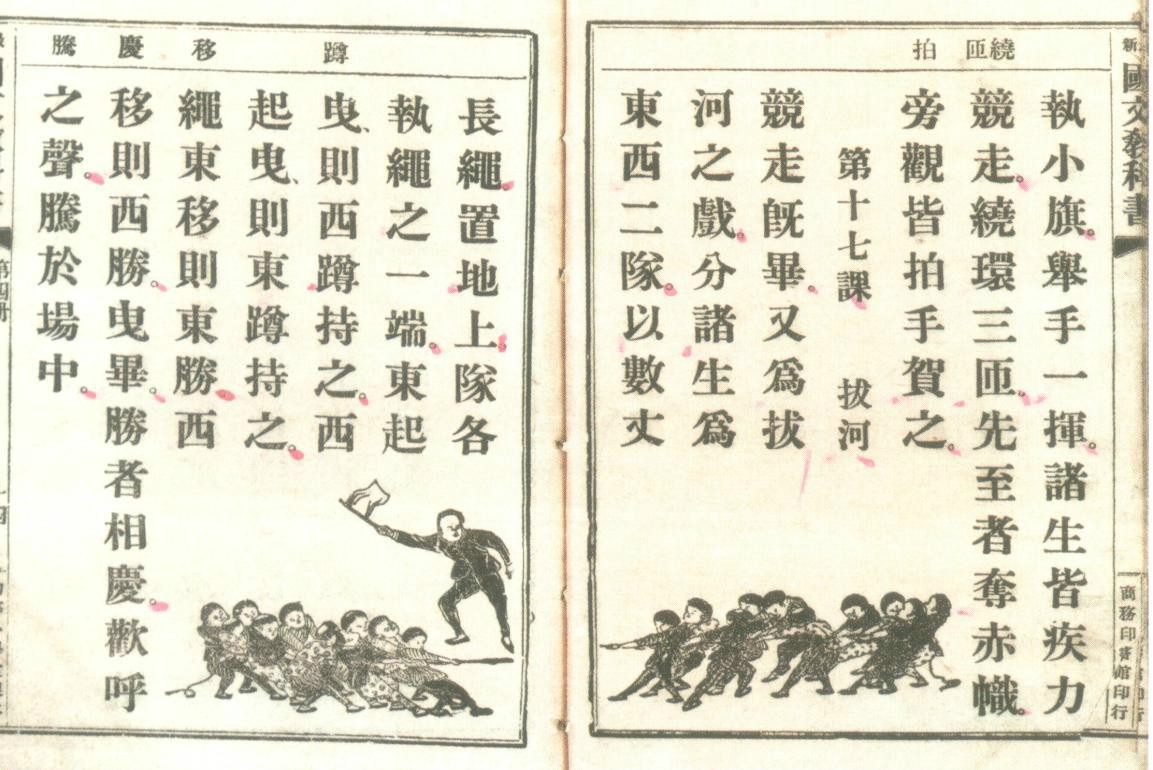 國文教科書
商務印書館印行
繞 匝
拍
執小旗。舉手一揮。諸生皆疾力
競走。繞環三匝。先至者奪赤幟。
旁觀皆拍手賀之。
第十七課 拔河
競走旣畢。又爲拔
河之戲。分諸生爲
東西二隊。以數丈
蹲
移
慶
騰
長繩。置地上。隊各
執繩之一端。東起
曳、則西蹲持之。西
起曳、則東蹲持之。
繩東移則東勝。西
移則西勝。曳畢。勝者相慶。歡呼
之聲。騰於場中。
第四册